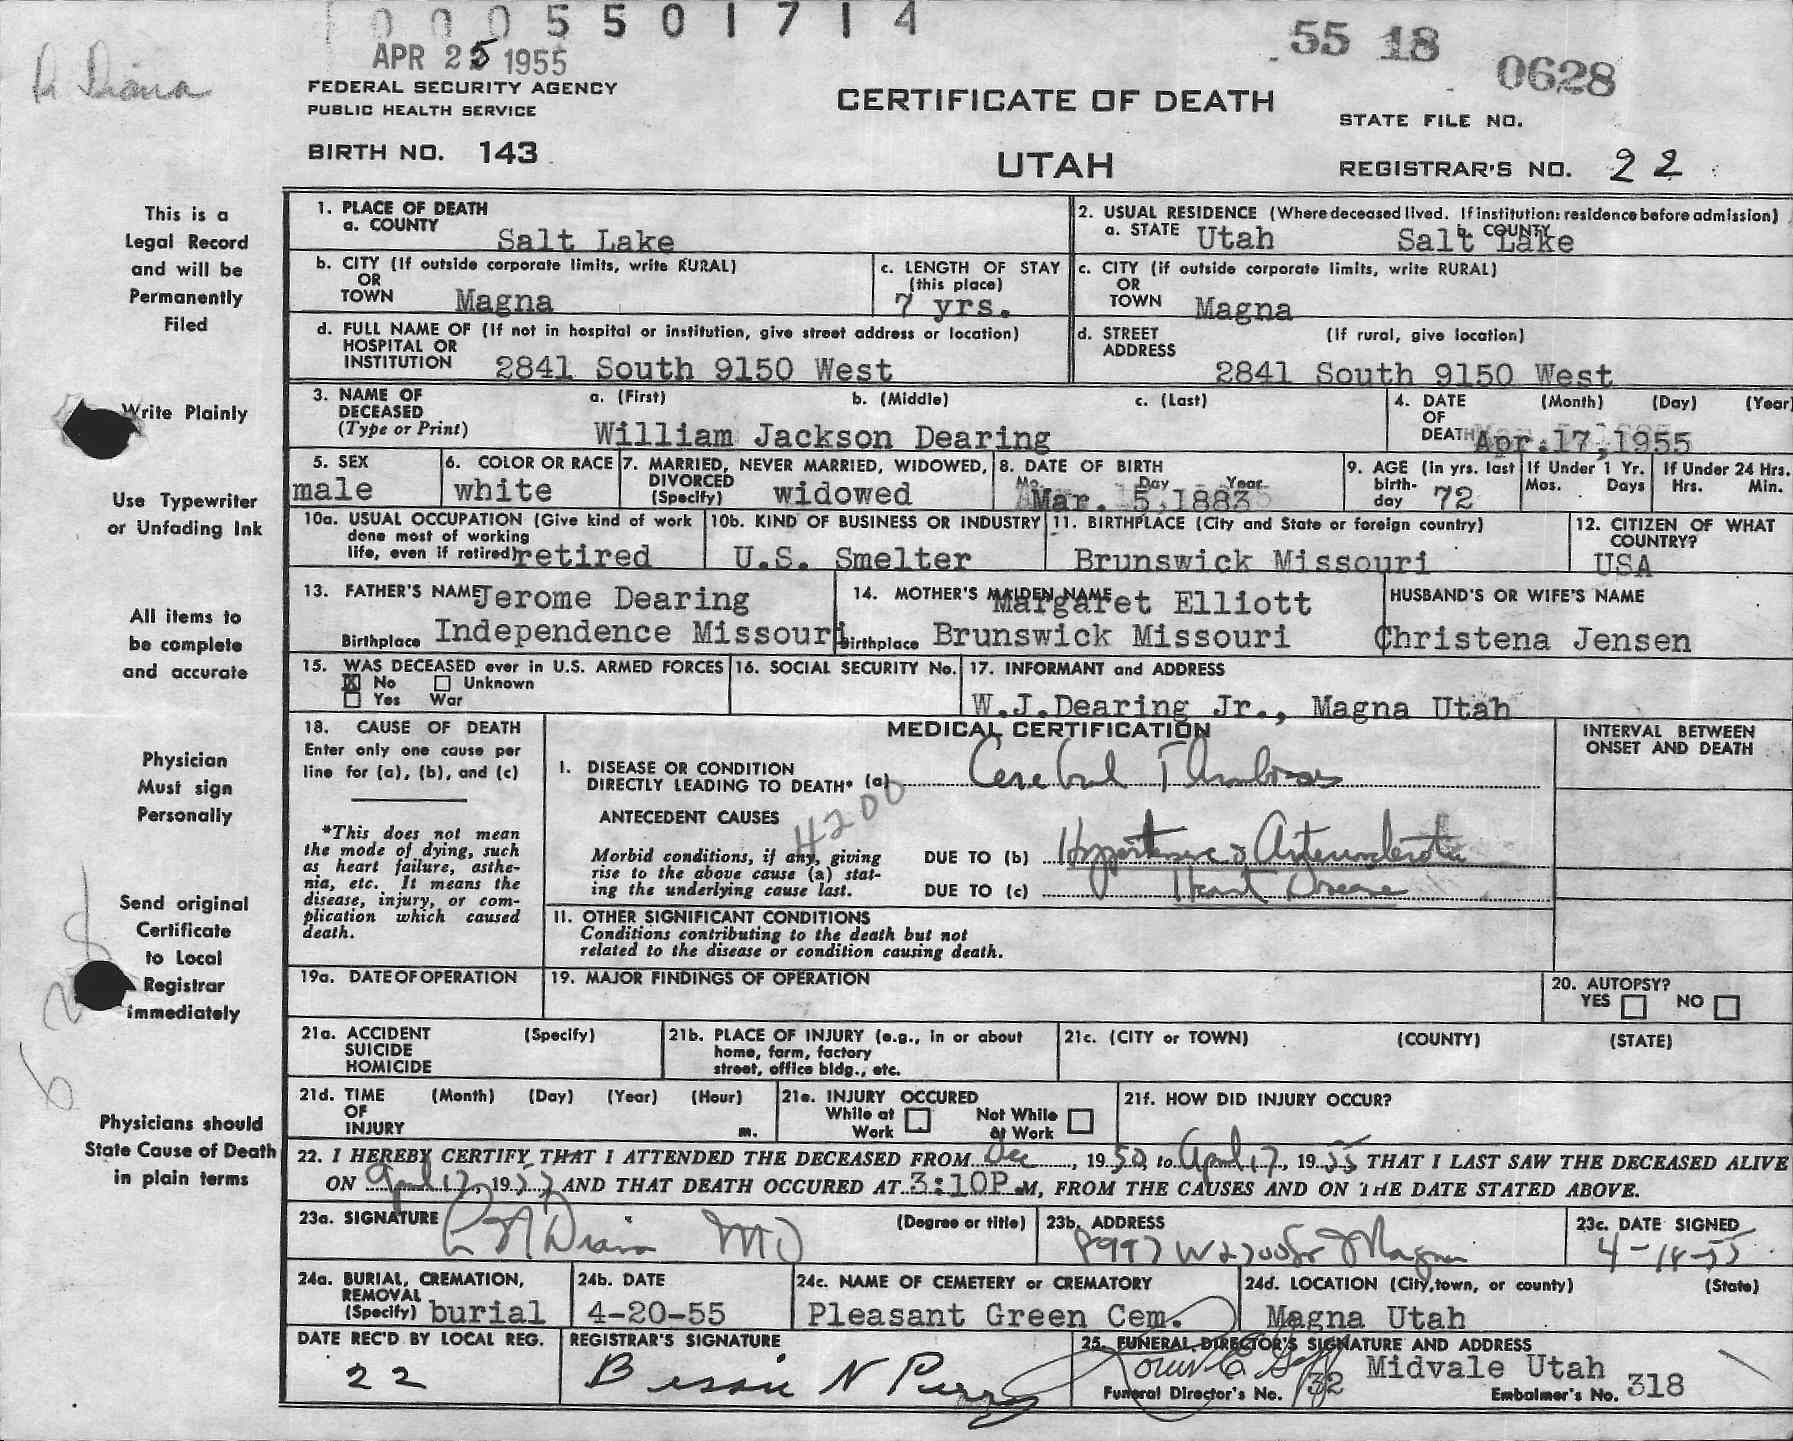 0005501714
APR 25 1955
55 18
0628
R Diana
FEDERAL SECURITY AGENCY
PUBLIC HEALTH SERVICE
CERTIFICATE OF DEATH
STATE FILE NO.
BIRTH NO. 143
UTAH
REGISTRAR'S NO. 22
This is a
Legal Record
and will be
Permanently
Filed
Write Plainly
Use Typewriter
or Unfading Ink
All items to
be complete
and accurate
Physician
Must sign
Personally
Send original
Certificate
to Local
Registrar
immediately
Physicians should
State Cause of Death
in plain terms
1. PLACE OF DEATH
a. COUNTY
Salt Lake
2. USUAL RESIDENCE (Where deceased lived. If institution: residence before admission)
a. STATE Utah b. COUNTY Salt Lake
b. CITY (If outside corporate limits, write RURAL)
OR
TOWN Magna
c. LENGTH OF STAY
(this place)
7 yrs.
c. CITY (if outside corporate limits, write RURAL)
OR
TOWN Magna
d. FULL NAME OF (If not in hospital or institution, give street address or location)
HOSPITAL OR
INSTITUTION 2841 South 9150 West
d. STREET (If rural, give location)
ADDRESS
2841 South 9150 West
3. NAME OF a. (First) b. (Middle) c. (Last)
DECEASED
(Type or Print) William Jackson Dearing
4. DATE (Month) (Day) (Year)
OF
DEATH Apr.17,1955
5. SEX
male
6. COLOR OR RACE
white
7. MARRIED, NEVER MARRIED, WIDOWED,
DIVORCED
(Specify) widowed
8. DATE OF BIRTH
Mo. Day Year
Mar. 5,1883
9. AGE (In yrs. last
birth-
day 72
If Under 1 Yr.
Mos. Days
If Under 24 Hrs.
Hrs. Min.
10a. USUAL OCCUPATION (Give kind of work
done most of working
life, even if retired) retired
10b. KIND OF BUSINESS OR INDUSTRY
U.S. Smelter
11. BIRTHPLACE (City and State or foreign country)
Brunswick Missouri
12. CITIZEN OF WHAT
COUNTRY?
USA
13. FATHER'S NAME Jerome Dearing
Birthplace Independence Missouri
14. MOTHER'S MAIDEN NAME Margaret Elliott
Birthplace Brunswick Missouri
HUSBAND'S OR WIFE'S NAME
Christena Jensen
15. WAS DECEASED ever in U.S. ARMED FORCES
X No Unknown
Yes War
16. SOCIAL SECURITY No.
17. INFORMANT and ADDRESS
W.J.Dearing Jr., Magna Utah
18. CAUSE OF DEATH
Enter only one cause per
line for (a), (b), and (c)
*This does not mean
the mode of dying, such
as heart failure, asthe-
nia, etc. It means the
disease, injury, or com-
plication which caused
death.
MEDICAL CERTIFICATION
INTERVAL BETWEEN
ONSET AND DEATH
I. DISEASE OR CONDITION
DIRECTLY LEADING TO DEATH* (a) Cerebral Thrombosis
4200
ANTECEDENT CAUSES
Morbid conditions, if any, giving
rise to the above cause (a) stat-
ing the underlying cause last.
DUE TO (b) Hypertensive & Arteriosclerotic
DUE TO (c) Heart Disease
II. OTHER SIGNIFICANT CONDITIONS
Conditions contributing to the death but not
related to the disease or condition causing death.
19a. DATE OF OPERATION
19. MAJOR FINDINGS OF OPERATION
20. AUTOPSY?
YES NO
21a. ACCIDENT (Specify)
SUICIDE
HOMICIDE
21b. PLACE OF INJURY (e.g., in or about
home, farm, factory
street, office bldg., etc.
21c. (CITY or TOWN) (COUNTY) (STATE)
21d. TIME (Month) (Day) (Year) (Hour)
OF
INJURY m.
21e. INJURY OCCURED
While at Work Not While at Work
21f. HOW DID INJURY OCCUR?
22. I HEREBY CERTIFY THAT I ATTENDED THE DECEASED FROM Dec, 1950, to April 17, 1955 THAT I LAST SAW THE DECEASED ALIVE
ON April 17, 1955 AND THAT DEATH OCCURED AT 3:10P M, FROM THE CAUSES AND ON THE DATE STATED ABOVE.
23a. SIGNATURE (Degree or title)
Diana MD
23b. ADDRESS
8997 W 2700 So Magna
23c. DATE SIGNED
4-18-55
24a. BURIAL, CREMATION,
REMOVAL
(Specify) burial
24b. DATE
4-20-55
24c. NAME OF CEMETERY or CREMATORY
Pleasant Green Cem.
24d. LOCATION (City, town, or county) (State)
Magna Utah
DATE REC'D BY LOCAL REG.
22
REGISTRAR'S SIGNATURE
Bessie N
25. FUNERAL DIRECTOR'S SIGNATURE AND ADDRESS
Midvale Utah
Funeral Director's No. 132
Embalmer's No. 318